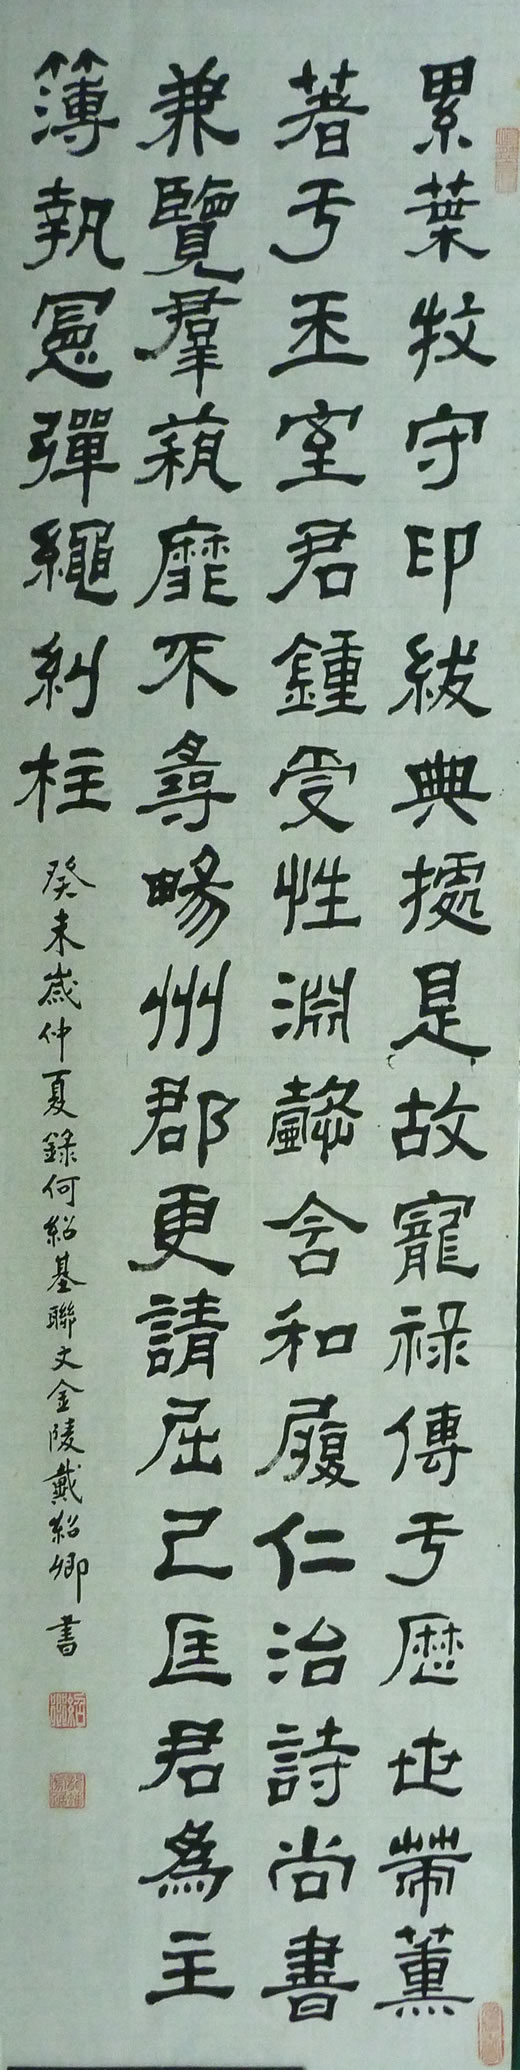 累葉牧守印紱典據是故寵祿傳于歷世帶薰
著于王室君鍾受性淵懿含和履仁治詩尚書
兼覽羣蓺靡不尋暢州郡更請屈己匡君為主
簿執憲彈繩糾枉
癸未歲仲夏錄何紹基聯文金陵戴紹卿書